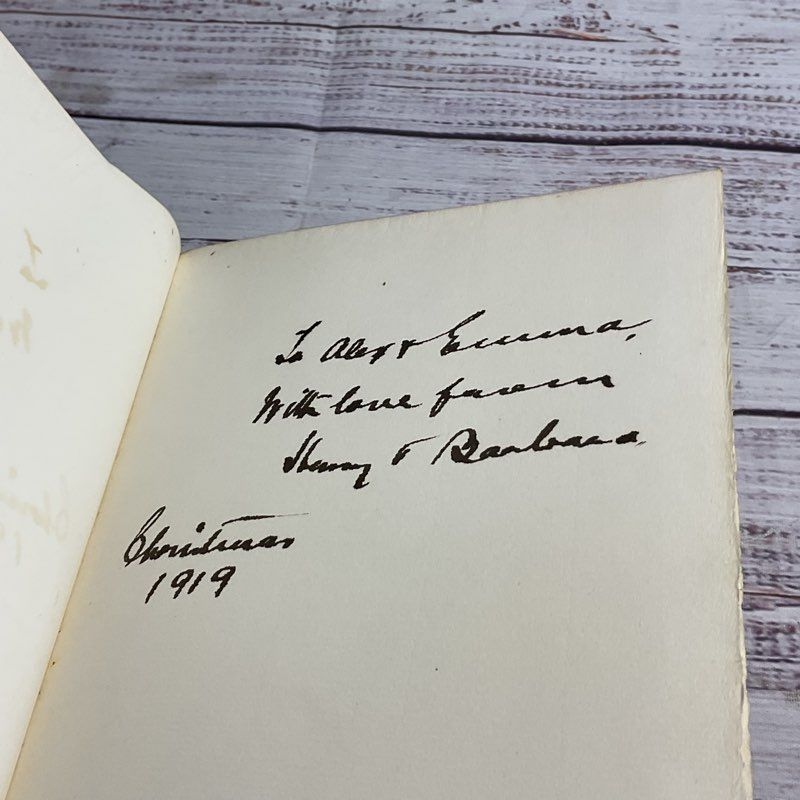 To Alex & Emma,
With love from
Henry & Barbara.
Christmas
1919